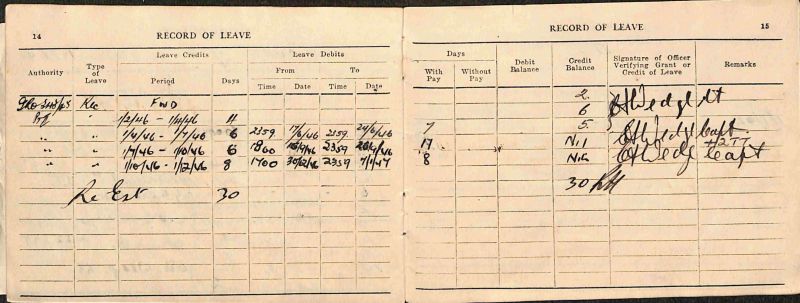 14 RECORD OF LEAVE
Authority Type of Leave Leave Credits Leave Debits
Period Days From To
Time Date Time Date
Rec FWD
" 1/2/46 - 1/4/46 4
" " 1/4/46 - 1/7/46 6 2359 7/6/46 2359 24/6/46
" " 1/7/46 - 1/10/46 6 1800 2359
" " 1/10/46 - 1/12/46 8 1700 30/12/46 2359 7/1/47
Re Est 30
RECORD OF LEAVE 15
Days Debit Balance Credit Balance Signature of Officer Verifying Grant or Credit of Leave Remarks
With Pay Without Pay
2
6 Lt
7 5 Capt.
17 Nil
8 Nil Capt
30